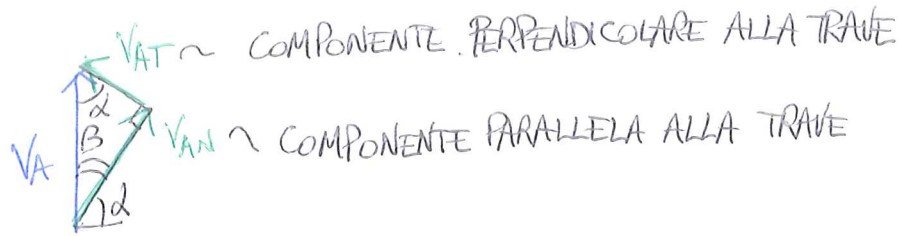 VAT ~ COMPONENTE PERPENDICOLARE ALLA TRAVE
α
β
VA
VAN ~ COMPONENTE PARALLELA ALLA TRAVE
α